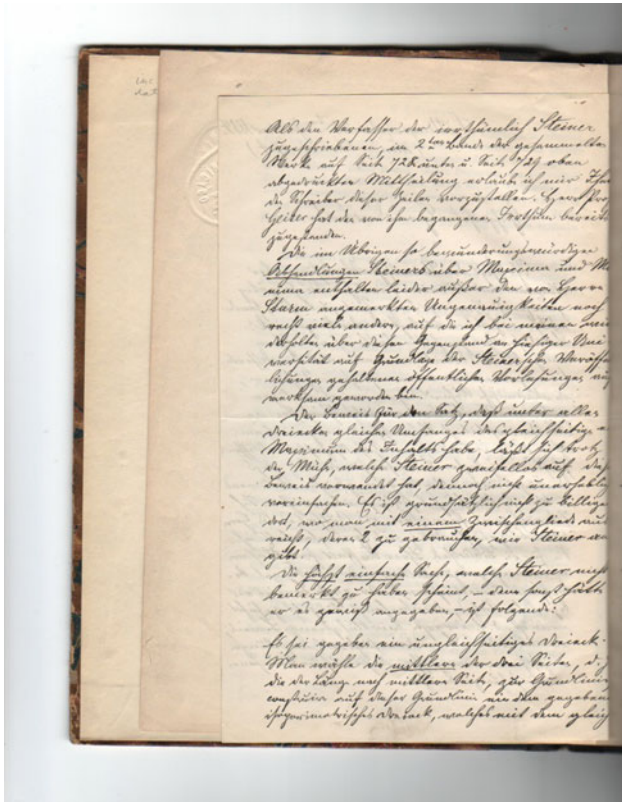 Als den Verfasser der irrthümlich Steiner
zugeschriebenen, im 2ten Bande der gesammelten
Werke auf Seite 728 unten u. Seite 729 oben
abgedruckten Mittheilung erlaubt ich mir Ihnen
den Schreiber dieser Zeilen vorzustellen. Herr Pro
hat den von ihm begangenen Irrthum bereits
zugestanden.
Die im Übrigen so bewunderungswürdigen
Abhandlungen Steiners über Maxima und Mi
nima enthalten leider außer den von Herrn
Sturm angemerkten Ungenauigkeiten noch
recht viele andere, auf die ich bei meinen wie
derholten über diesen Gegenstand an hiesiger Uni
versität auf Grundlage der Steiner'schen Veröffent
lichungen gehaltenen öffentlichen Vorlesungen auf
merksam geworden bin.
Der Beweis für den Satz, daß unter allen
Dreiecken gleichen Umfanges das gleichseitige ein
Maximum des Inhalts habe, läßt sich trotz
der Mühe, welche Steiner zweifellos auf diesen
Beweis verwendet hat, dennoch nicht unerheblich
vereinfachen. Es ist grundsätzlich nicht zu billigen
dort, wo man mit einem Zwischengliede aus
reicht, deren 2 zu gebrauchen, wie Steiner an
gibt.
Die höchst einfache Sache, welche Steiner nicht
bemerkt zu haben scheint, – denn sonst hätte
er es gewiß angegeben, – ist folgende:
Es sei gegeben ein ungleichseitiges Dreieck.
Man wähle die mittlere der drei Seiten, d. h
die der Länge nach mittlere Seite, zur Grundlinie
construire auf dieser Grundlinie ein dem gegebenen
isoperimetrisches Dreieck, welches mit dem gleich